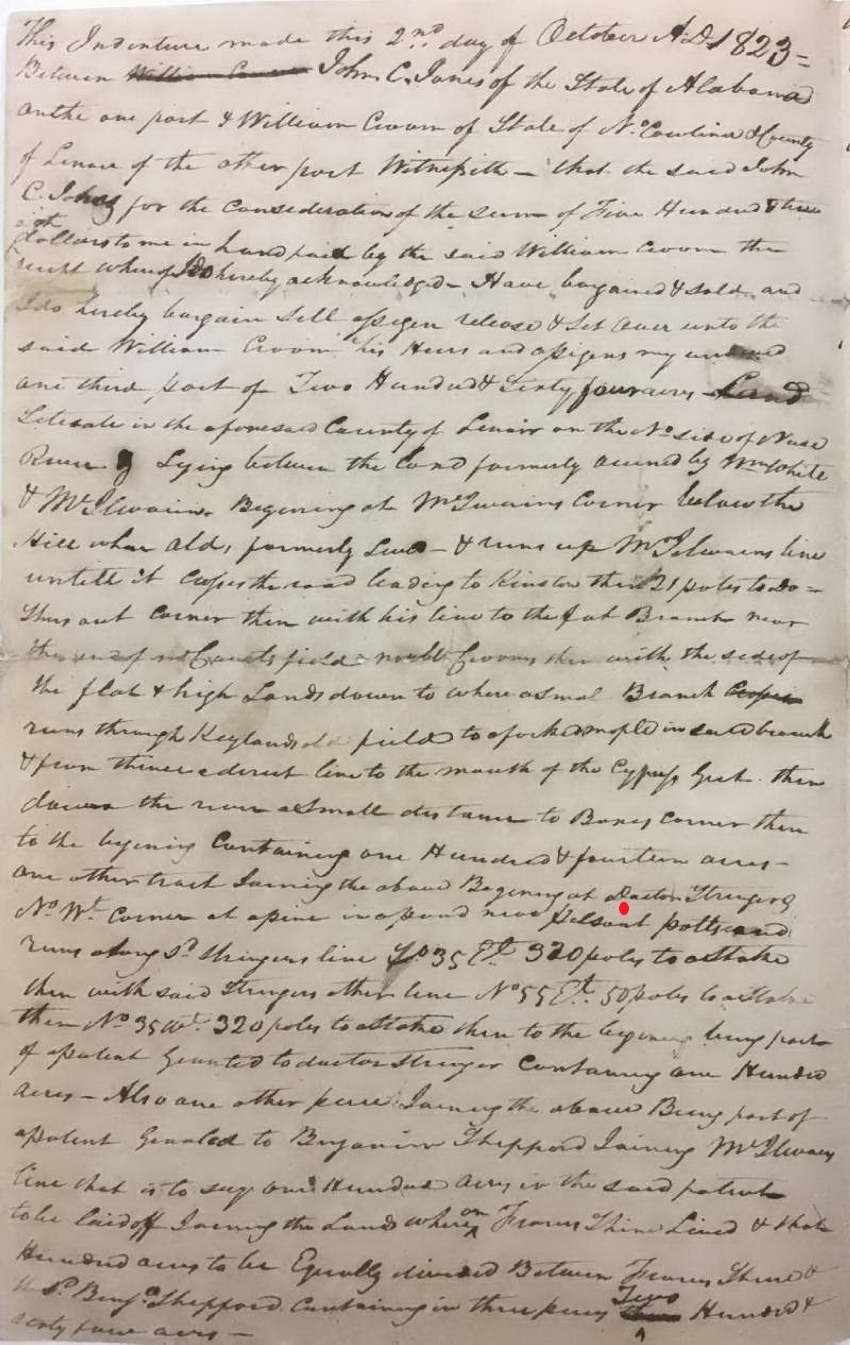 This Indenture made this 2nd day of October A.D. 1823 =
Between William Croom John C. Jones of the State of Alabama
on the one part & William Croom of State of No. Carolina & County
of Lenoir of the other part Witnesseth — that the said John
C. Jones for the consideration of the sum of Five Hundred & three
dollars to me in hand paid by the said William Croom the
receipt whereof I do hereby acknowledged — Have bargained & sold and
I do hereby bargain Sell assign release & Set over unto the
said William Croom his Heirs and assigens my
one third part of Two Hundred & Sixty four acres Land
Situate in the aforesaid County of Lenoir on the No. side of Nuse
River Lying between the Land formerly owned by Wm. White
& McIlwains Begining at McIlwains Corner below the
Hill whar formerly Lived — & runs up McIlwains line
untill it Crosses the road leading to Kinston then 21 poles to Do =
then with his line to the flat Branch near
the end of field then with the side of
the flat & high Lands down to where a Smal Branch
runs through old field to a forked maple in said branch
& from thince a direct line to the mouth of the Cypress Gut then
down the river a Small distance to Corner then
to the begining Containing one Hundred & fourteen acres —
one other tract Joining the above Begining at Doctor Stringers
No. Wt. Corner at a pine in a pond near potts and
runs along sd. Stringers line So 35 Et. 320 poles to a Stake
then with said Stringers other line No 55 Et. 50 poles to a Stake
then No 35 Wt. 320 poles to a Stake then to the begining being part
of a patent Granted to doctor Stringer Containing one Hundred
acres — Also one other peice Joining the above Being part of
a patent Granted to Benjamin Sheppord Joining McIlwains
line that is to say one Hundred acres in the said patent
to be laid off Joining the Land where on Lived & that
Hundred acres to be Equally divided Between &
sd. Benja. Sheppord Containing in three peices Two Hundred &
sixty four acres —